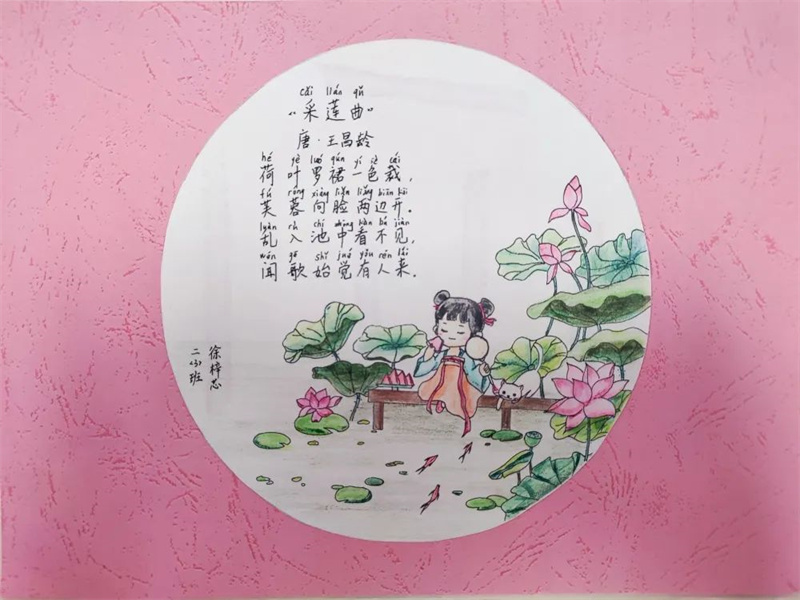 cǎi lián qǔ
“采莲曲”
唐·王昌龄
hé yè luó qún yí sè cái
荷叶罗裙一色裁，
fú róng xiàng liǎn liǎng biān kāi
芙蓉向脸两边开。
luàn rù chí zhōng kàn bú jiàn
乱入池中看不见，
wén gē shǐ jué yǒu rén lái
闻歌始觉有人来。
二(3)班
徐梓芯